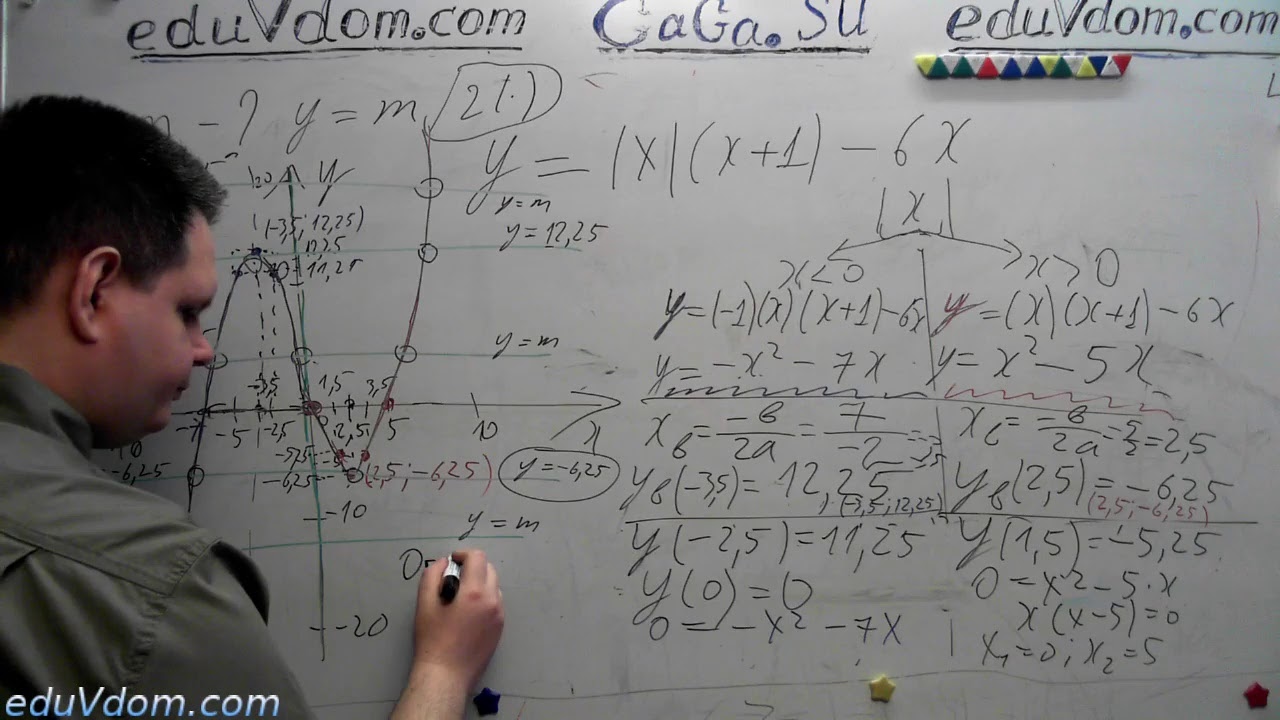 eduVdom.com CaGa.SU eduVdom.com
m - ? y = m 2 т.
y = |x|(x+1) - 6x
20 y
y = m
(-3,5; 12,25)
y = 12,25
12,25
11,25
|x|
x < 0 x > 0
y = (-1)(x)(x+1) - 6x y = (x)(x+1) - 6x
y = m
y = -x² - 7x y = x² - 5x
-3,5 1,5 3,5
-7 -5 -2,5 2,5 5 10 x
xв = -в/2a = 7/-2 = -3,5 xв = -в/2a = 5/2 = 2,5
-6,25 -5,25 -6,25 (2,5; -6,25) y = -6,25
yв(-3,5) = 12,25 yв(2,5) = -6,25
(-3,5; 12,25) (2,5; -6,25)
-10 y = m
y(-2,5) = 11,25 y(1,5) = -5,25
y(0) = 0 0 = x² - 5·x
-20
0 = -x² - 7x x(x-5) = 0
x₁ = 0; x₂ = 5
eduVdom.com